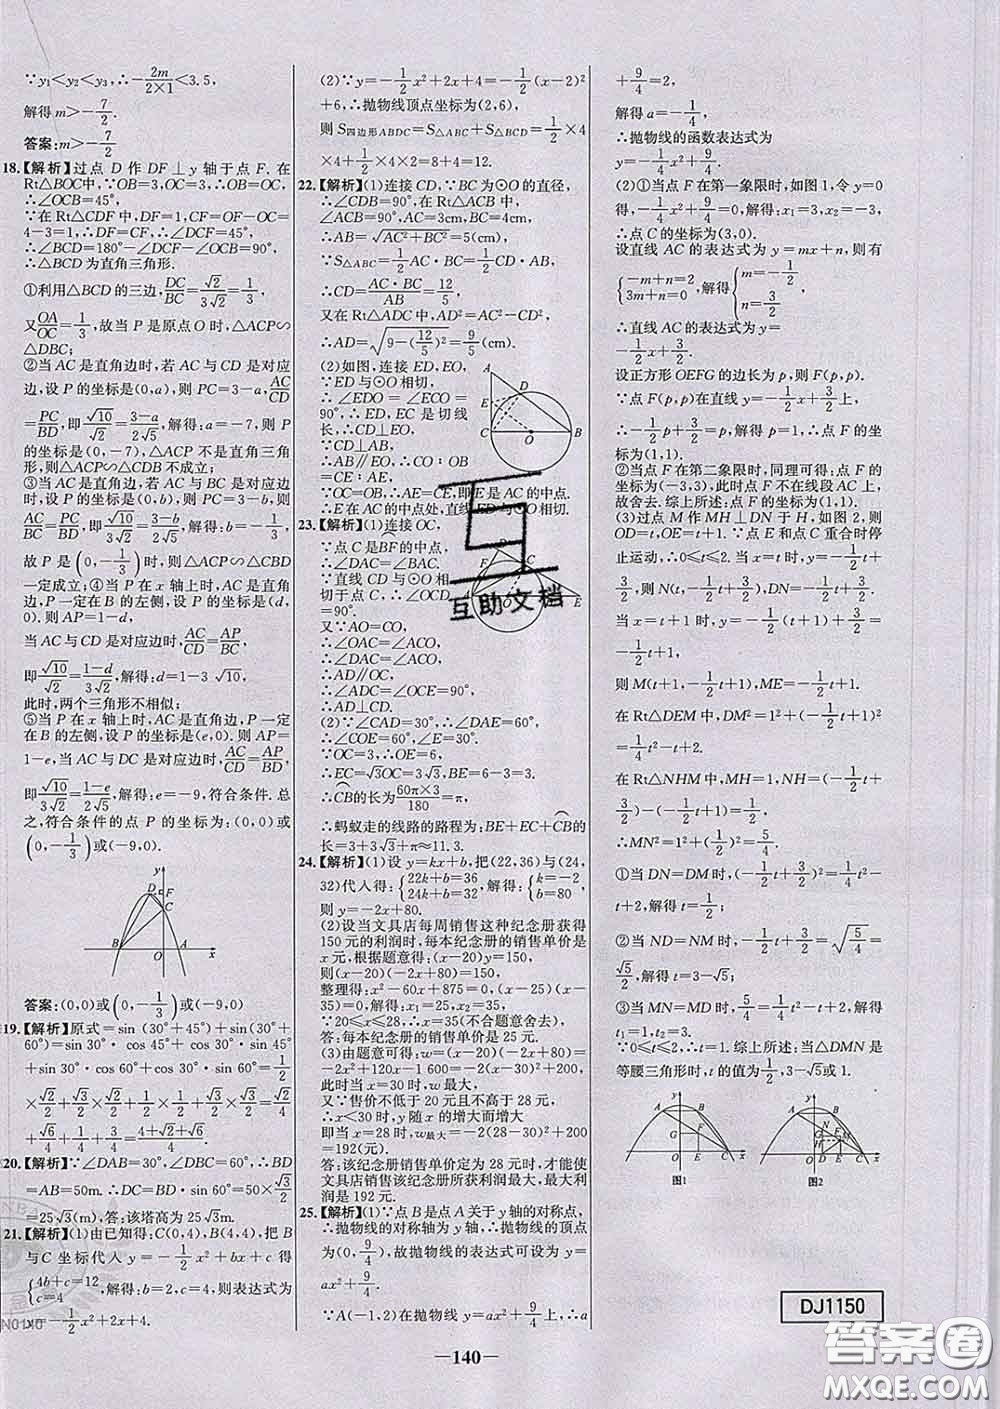 ∵y₁<y₂<y₃,∴-2m/(2×1)<3.5,
解得m>-7/2.
答案:m>-7/2
18.【解析】过点 D 作 DF⊥y 轴于点 F. 在
Rt△BOC中,∵OB=3,OC=3,∴OB=OC,
∴∠OCB=45°.
∵在 Rt△CDF 中,DF=1,CF=OF-OC=
4-3=1,∴DF=CF,∴∠DCF=45°,
∴∠BCD=180°-∠DCF-∠OCB=90°,
∴△BCD为直角三角形.
①利用△BCD的三边,DC/BC=√2/(3√2)=1/3,
又OA/OC=1/3,故当 P 是原点O时,△ACP∽
△DBC;
②当 AC 是直角边时,若 AC 与 CD 是对应
边,设 P 的坐标是(0,a),则 PC=3-a,AC/CD
=PC/BD,即√10/√2=(3-a)/(2√5),解得:a=-7,则 P
的坐标是(0,-7),△ACP 不是直角三角
形,则△ACP∽△CDB 不成立;
③当 AC 是直角边,若 AC 与 BC 是对应边
时,设 P 的坐标是(0,b),则 PC=3-b,则
AC/BC=PC/BD,即√10/(3√2)=(3-b)/(2√5),解得:b=-1/3,
故 P 是(0,-1/3)时,则△ACP∽△CBD
一定成立;④当 P 在 x 轴上时,AC 是直角
边,P 一定在 B 的左侧,设 P 的坐标是(d,
0).则 AP=1-d,
当 AC 与 CD 是对应边时,AC/CD=AP/BC,
即√10/√2=(1-d)/(3√2),解得:d=1-3√10,
此时,两个三角形不相似;
⑤当 P 在 x 轴上时,AC是直角边,P 一定
在 B 的左侧,设 P 的坐标是(e,0).则 AP=
1-e,当 AC 与 DC 是对应边时,AC/CD=AP/BD,
即√10/√2=(1-e)/(2√5),解得:e=-9,符合条件.总
之,符合条件的点 P 的坐标为:(0,0)或
(0,-1/3)或(-9,0).
D F C B O A x
答案:(0,0)或(0,-1/3)或(-9,0)
19.【解析】原式=sin (30°+45°)+sin(30°+
60°)=sin 30°·cos 45°+cos 30°·sin 45°
+sin 30°·cos 60°+cos 30°·sin 60°=1/2
×√2/2+√3/2×√2/2+1/2×1/2+√3/2×√3/2=√2/4
+√6/4+1/4+3/4=(4+√2+√6)/4.
20.【解析】∵∠DAB=30°,∠DBC=60°,∴BD
=AB=50m.∴DC=BD·sin 60°=50×√3/2
=25√3(m),答:该塔高为 25√3m.
21.【解析】(1)由已知得:C(0,4),B(4,4),把 B
与 C 坐标代人 y=-1/2x²+bx+c 得
{4b+c=12 c=4,解得:b=2,c=4,则表达式为
y=-1/2x²+2x+4.
(2)∵y=-1/2x²+2x+4=-1/2(x-2)²
+6,∴抛物线顶点坐标为(2,6),
则 S四边形ABDC=S△ABC+S△BCD=1/2×4
×4+1/2×4×2=8+4=12.
22.【解析】(1)连接 CD,∵BC 为⊙O 的直径,
∴∠CDB=90°.在 Rt△ABC 中,
∠ACB=90°,AC=3cm,BC=4cm,
∴AB=√(AC²+BC²)=5(cm)
∵S△ABC=1/2AC·BC=1/2AB·CD,
∴CD=AC·BC/AB=12/5,
又在 Rt△ADC 中,AD²=AC²-CD²,
∴AD=√(9-(12/5)²)=9/5(cm).
(2)如图,连接 ED,EO,
∵ED与⊙O相切,
∴∠EDO=∠ECO=
90°,∴ED,EC 是切线
长,∴CD⊥EO,
∵CD⊥AB,
∴AB∥EO,∴CO:OB
=CE:AE,
∵OC=OB,∴AE=CE,即E是 AC 的中点.
∴E 在 AC 的中点处,直线 ED 与⊙O相切.
A D E C O B
23.【解析】(1)连接 OC,
∵点 C 是BF的中点,
∴∠DAC=∠BAC.
∵直线 CD 与⊙O 相
切于点 C,∴∠OCD
=90°.
又∵AO=CO,
∴∠OAC=∠ACO,
∴∠DAC=∠ACO,
∴AD∥OC,
∴∠ADC=∠OCE=90°,
∴AD⊥CD.
(2)∵∠CAD=30°,∴∠DAE=60°,
∴∠COE=60°,∠E=30°,
∵OC=3,∴OE=6,
∴EC=√3OC=3√3,BE=6-3=3,
∴CB的长为60π×3/180=π,
∴蚂蚁走的线路的路程为:BE+EC+CB的
长=3+3√3+π≈11.3.
24.【解析】(1)设 y=kx+b,把(22,36)与(24,
32)代人得:{22k+b=36 24k+b=32,解得:{k=-2 b=80,
则 y=-2x+80.
(2)设当文具店每周销售这种纪念册获得
150 元的利润时,每本纪念册的销售单价是
x 元,根据题意得:(x-20)y=150,
则(x-20)(-2x+80)=150,
整理得:x²-60x+875=0,
(x-25)(x-35)=0,解得:x₁=25,x₂=35,
∵20≤x≤28,∴x=35(不合题意舍去),
答:每本纪念册的销售单价是 25 元.
(3)由题意可得:w=(x-20)(-2x+80)=
-2x²+120x-1600=-2(x-30)²+200,
此时当 x=30 时,w 最大,
又∵售价不低于 20 元且不高于 28 元,
∴x<30 时,y 随 x 的增大而增大
即当 x=28 时,w最大=-2(28-30)²+200
=192(元).
答:该纪念册销售单价定为 28 元时,才能使
文具店销售该纪念册所获得利润最大,最大
利润是 192 元.
25.【解析】(1)∵点 B 是点 A 关于 y 轴的对称点,
∴抛物线的对称轴为 y 轴,∴抛物线的顶点
为(0,9/4),故抛物线的表达式可设为 y=
ax²+9/4.
∵A(-1,2)在抛物线 y=ax²+9/4上,∴a
+9/4=2,
解得 a=-1/4,
∴抛物线的函数表达式为
y=-1/4x²+9/4.
(2)①当点 F 在第一象限时,如图1,令 y=0
得,-1/4x²+9/4=0,解得:x₁=3,x₂=-3,
∴点 C 的坐标为(3,0).
设直线 AC 的表达式为 y=mx+n,则有
{-m+n=2 3m+n=0,解得{m=-1/2 n=3/2,
∴直线 AC 的表达式为 y=
-1/2x+3/2.
设正方形 OEFG 的边长为 p,则 F(p,p).
∵点 F(p,p)在直线 y=-1/2x+3/2上,
∴-1/2p+3/2=p,解得 p=1,∴点 F 的坐
标为(1,1).
②当点 F 在第二象限时,同理可得:点 F 的
坐标为(-3,3),此时点 F 不在线段 AC 上,
故舍去.综上所述:点 F 的坐标为(1,1).
(3)过点 M 作 MH⊥DN 于 H,如图 2,则
OD=t,OE=t+1.∵点 E 和点 C 重合时停
止运动,∴0≤t≤2.当 x=t 时,y=-1/2t+
3/2,则 N(t,-1/2t+3/2),DN=-1/2t+3/2.
当 x=t+1 时,y=-1/2(t+1)+3/2=
-1/2t+1,
则 M(t+1,-1/2t+1),ME=-1/2t+1.
在 Rt△DEM 中,DM²=1²+(-1/2t+1)²=
1/4t²-t+2.
在 Rt△NHM 中,MH=1,NH=(-1/2t+
3/2)-(-1/2t+1)=1/2.
∴MN²=1²+(1/2)²=5/4.
①当 DN=DM 时,(-1/2t+3/2)²=1/4t²
-t+2,解得 t=1/2;
②当 ND=NM 时,-1/2t+3/2=√(5/4)=
√5/2,解得 t=3-√5;
③当 MN=MD 时,5/4=1/4t²-t+2,解得
t₁=1,t₂=3.
∵0≤t≤2,∴t=1.综上所述:当△DMN 是
等腰三角形时,t 的值为1/2,3-√5或 1.
图1
图2
DJ1150
—140—
互助文档
答案圈
MXQE.COM